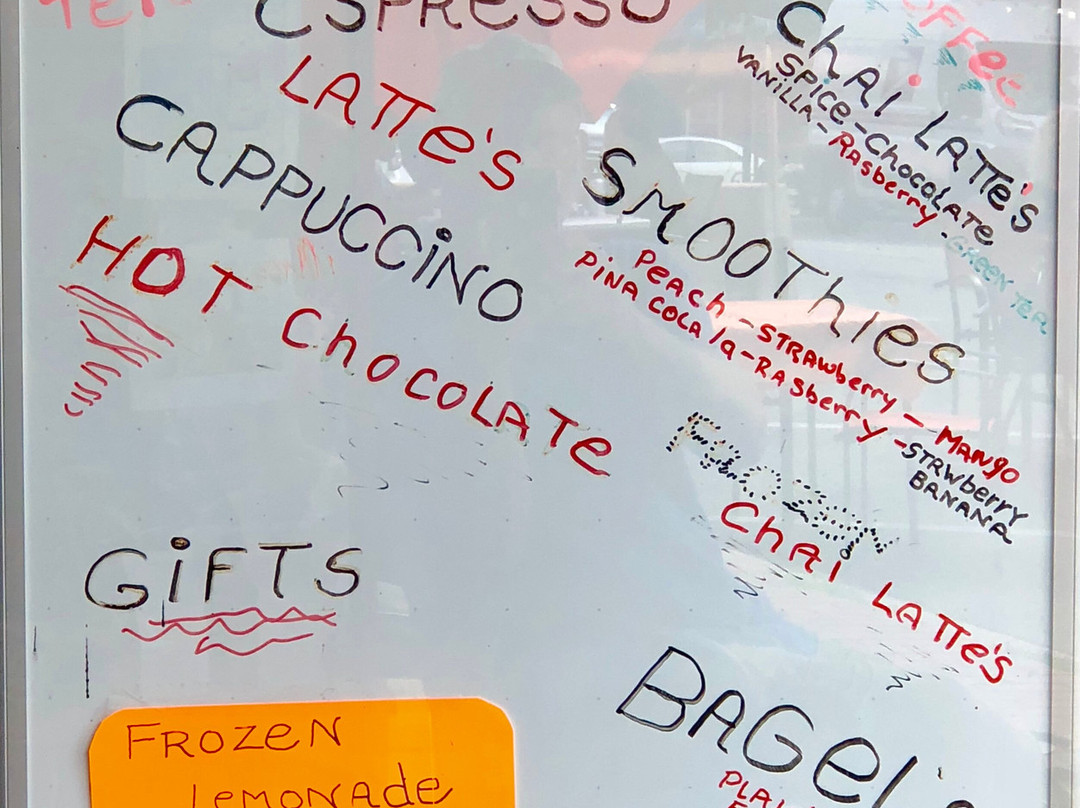 TEA
ESPRESSO
LATTe's
CAPPUCCiNO
HOT ChocoLATe
GiFTS
FROZeN
LeMONAde
COFFee
ChAi LATTe's
SPice-ChocoLATe
VANiLLA-RASberry-GREEN TeA
SMOOThies
PeAch-STRAwberry-MANgo
PiNA COLA/a-RASberry-STRWberry
BANANA
FROZEN
ChAi LATTe's
BAGeL
PLAi